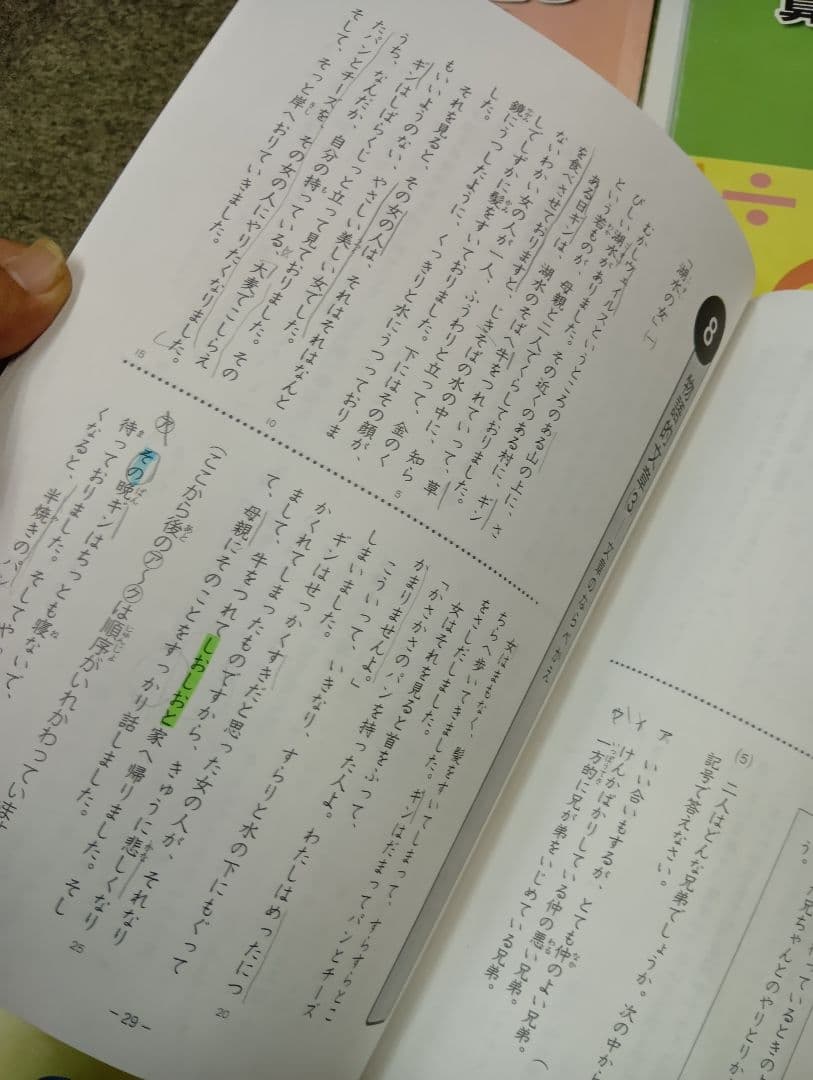 8
物語的文章3
文章のならべかえ
「湖水の女」
むかしウェイルスというところのある山の上に、さ
びしい湖水がありました。その近くのある村に、ギン
という若ものが、母親と二人でくらしておりました。
ある日ギンは、湖水のそばへ牛をつれていって、草
を食べさせておりますと、じきそばの水の中に、知ら
ないわかい女の人が一人、ふうわりと立って、金のく
しでしずかに髪をすいておりました。下にはその顔が、
鏡にうつしたように、くっきりと水にうつっておりま
した。
それを見ると、その女の人は、それはそれはなんと
もいいようのない、やさしい美しい女でした。
ギンはしばらくじっと立って見ておりました。その
うち、なんだか、自分の持っている、大麦でこしらえ
たパンとチーズを、その女の人にやりたくなりました。
そして、そっと岸へおりていきました。
5
10
15
女はまもなく、髪をすいてしまって、すらすらとこ
ちらへ歩いてきました。ギンはだまってパンとチーズ
をさしだしました。
女はそれを見ると首をふって、
「かさかさのパンを持った人よ。わたしはめったにつ
かまりませんよ。」
こういって、いきなり、すらりと水の下にもぐって
しまいました。
ギンはせっかくすきだと思った女の人が、それなり
かくれてしまったものですから、きゅうに悲しくなり
まして、牛をつれてしおしおと家へ帰りました。そし
て、母親にそのことをすっかり話しました。
20
25
(ここから後の㋐〜㋗は順序がいれかわっていま
㋐
その晩ギンはちっとも寝ないで、
待っておりました。そして
くなると、半焼きのパ
-29-
(5)
二人はどんな兄弟でしょうか。次の中から
記号で答えなさい。
ア いい合いもするが、とても仲のよい兄弟。
イ けんかばかりしている仲の悪い兄弟。
ウ 一方的に兄が弟をいじめている兄弟。
(
う。
っているときの
兄ちゃんとのやりとりか
÷